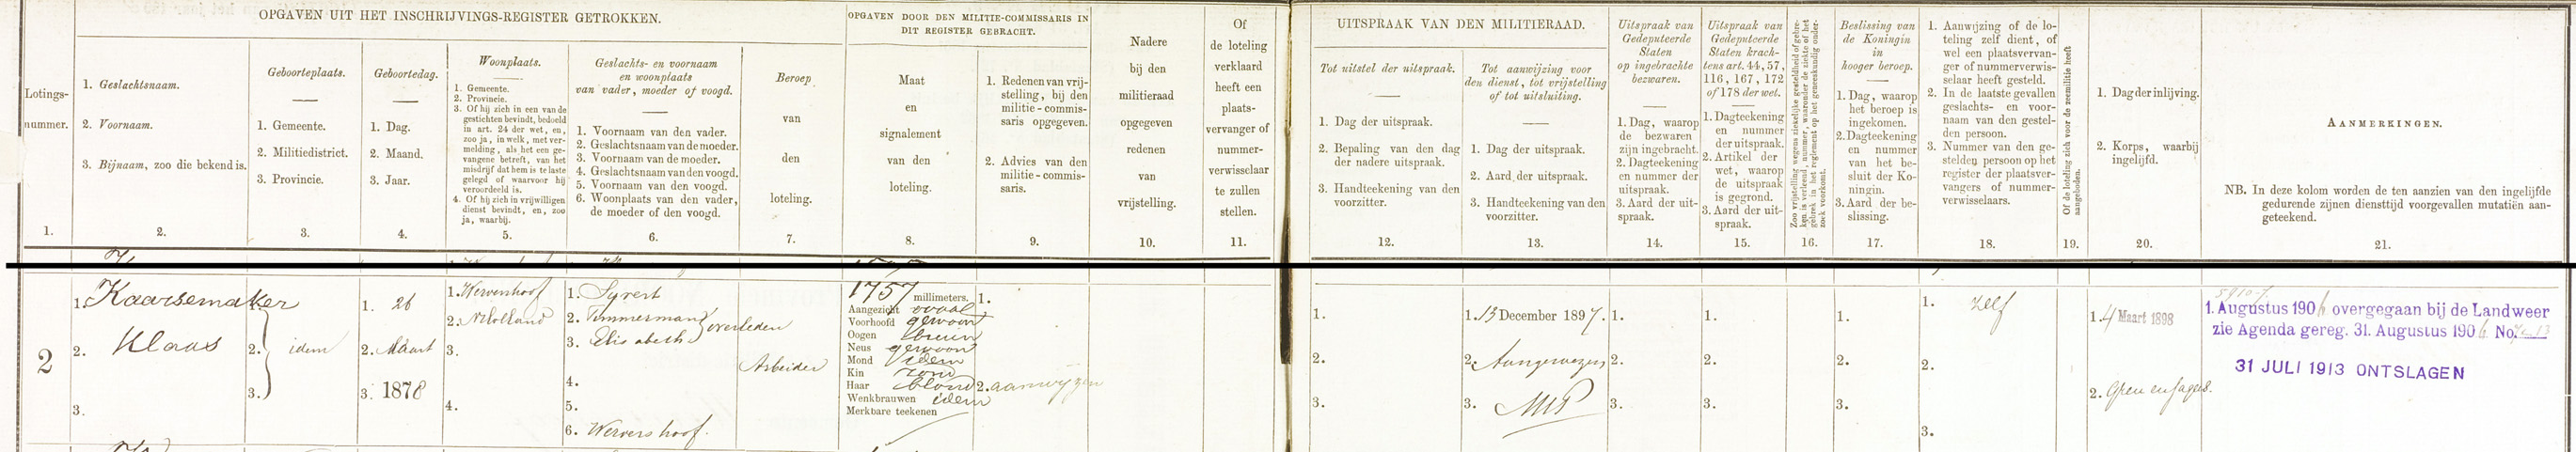 OPGAVEN UIT HET INSCHRIJVINGS-REGISTER GETROKKEN.
OPGAVEN DOOR DEN MILITIE-COMMISSARIS IN
DIT REGISTER GEBRACHT.
UITSPRAAK VAN DEN MILITIERAAD.
Lotings-
nummer.
1.
1. Geslachtsnaam.
2. Voornaam.
3. Bijnaam, zoo die bekend is.
2.
Geboorteplaats.
1. Gemeente.
2. Militiedistrict.
3. Provincie.
3.
Geboortedag.
1. Dag.
2. Maand.
3. Jaar.
4.
Woonplaats.
1. Gemeente.
2. Provincie.
3. Of hij zich in een van de
gestichten bevindt, bedoeld
in art. 24 der wet, en,
zoo ja, in welk, met ver-
melding, als het een ge-
vangene betreft, van het
misdrijf dat hem is te laste
gelegd of waarvoor hij
veroordeeld is.
4. Of hij zich in vrijwilligen
dienst bevindt, en, zoo
ja, waarbij.
5.
Geslachts- en voornaam
en woonplaats
van vader, moeder of voogd.
1. Voornaam van den vader.
2. Geslachtsnaam van de moeder.
3. Voornaam van de moeder.
4. Geslachtsnaam van den voogd.
5. Voornaam van den voogd.
6. Woonplaats van den vader,
de moeder of den voogd.
6.
Beroep
van
den
loteling.
7.
Maat
en
signalement
van den
loteling.
8.
1. Redenen van vrij-
stelling, bij den
militie-commis-
saris opgegeven.
2. Advies van den
militie-commis-
saris.
9.
Nadere
bij den
militieraad
opgegeven
redenen
van
vrijstelling.
10.
Of
de loteling
verklaard
heeft een
plaats-
vervanger of
nummer-
verwisselaar
te zullen
stellen.
11.
Tot uitstel der uitspraak.
1. Dag der uitspraak.
2. Bepaling van den dag
der nadere uitspraak.
3. Handteekening van den
voorzitter.
12.
Tot aanwijzing voor
den dienst, tot vrijstelling
of tot uitsluiting.
1. Dag der uitspraak.
2. Aard der uitspraak.
3. Handteekening van den
voorzitter.
13.
Uitspraak van
Gedeputeerde
Staten
op ingebrachte
bezwaren.
1. Dag, waarop
de bezwaren
zijn ingebracht.
2. Dagteekening
en nummer der
uitspraak.
3. Aard der uit-
spraak.
14.
Uitspraak van
Gedeputeerde
Staten krach-
tens art. 44, 57,
116, 167, 172
of 178 der wet.
1. Dagteekening
en nummer
der uitspraak.
2. Artikel der
wet, waarop
de uitspraak
is gegrond.
3. Aard der uit-
spraak.
15.
16.
Beslissing van
de Koningin
in
hooger beroep.
1. Dag, waarop
het beroep is
ingekomen.
2. Dagteekening
en nummer
van het be-
sluit der Ko-
ningin.
3. Aard der be-
slissing.
17.
1. Aanwijzing of de lo-
teling zelf dient, of
wel een plaatsvervan-
ger of nummerverwis-
selaar heeft gesteld.
2. In de laatste gevallen
geslachts- en voor-
naam van den gestel-
den persoon.
3. Nummer van den ge-
stelden persoon op het
register der plaatsver-
vangers of nummer-
verwisselaars.
18.
Of de loteling zich voor de zeemilitie heeft
aangeboden.
19.
1. Dag der inlijving.
2. Korps, waarbij
ingelijfd.
20.
AANMERKINGEN.
NB. In deze kolom worden de ten aanzien van den ingelijfde
gedurende zijnen diensttijd voorgevallen mutatiën aan-
geteekend.
21.
2
1. Kaarsemaker
2. Klaas
3.
1.
2. idem
3.
1. 26
2. Maart
3. 1878
1. Wervershoof
2. NHolland
3.
4.
1. Syvert
2. Timmerman
3. Elisabeth overleden
4.
5.
6. Wervershoof.
Arbeider
1757 millimeters.
Aangezicht ovaal
Voorhoofd gewoon
Oogen bruin
Neus gewoon
Mond idem
Kin rond
Haar blond
Wenkbrauwen idem
Merkbare teekenen
1.
2. aanwijzen
1.
2.
3.
1. 13 December 1897.
2. Aangewezen
3.
1.
2.
3.
1.
2.
3.
1.
2.
3.
1. Zelf
2.
3.
1. 4 Maart 1898
2. Gren en Jagers.
1. Augustus 1906 overgegaan bij de Landweer
zie Agenda gereg. 31. Augustus 1906 No.
31 JULI 1913 ONTSLAGEN